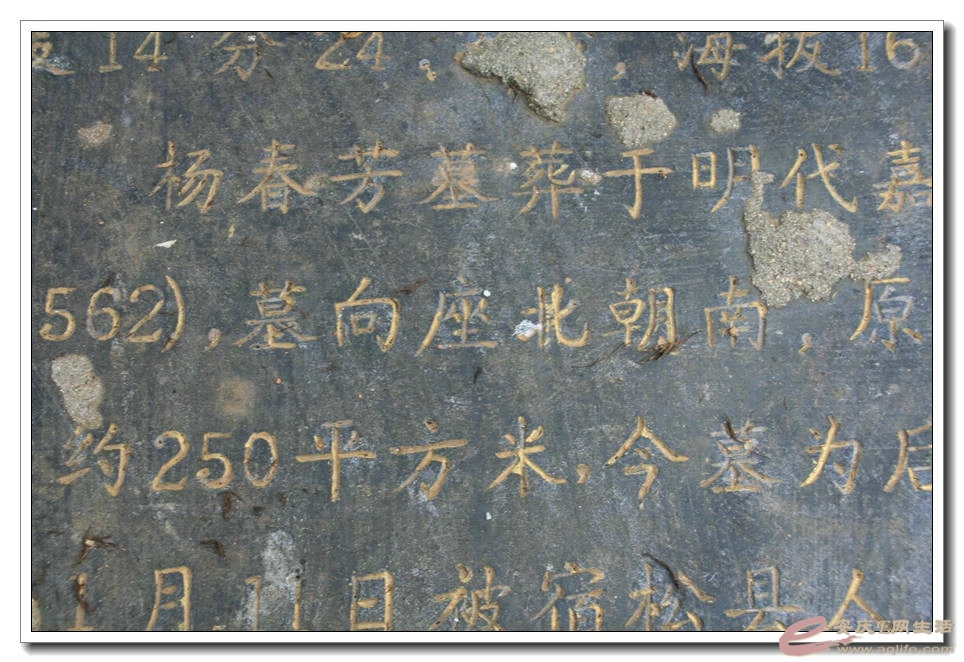 14分24.8",海拔16
杨春芳墓葬于明代嘉
562),墓向座北朝南,原
约250平方米,今墓为后
1月11日被宿松县人
安庆e网生活
www.aqlife.com